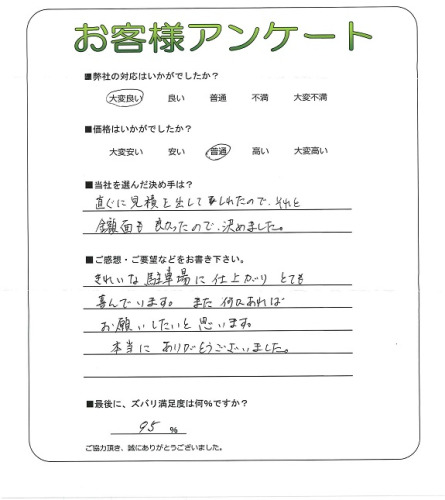 お客様アンケート
■弊社の対応はいかがでしたか?
大変良い 良い 普通 不満 大変不満
■価格はいかがでしたか?
大変安い 安い 普通 高い 大変高い
■当社を選んだ決め手は?
直ぐに見積を出して下しれたので、それと
金額面も良かったので、決めました。
■ご感想・ご要望などをお書き下さい。
きれいな駐車場に仕上がり とても
喜んでいます。また 何かあれば
お願いしたいと思います。
本当に ありがとうございました。
■最後に、ズバリ満足度は何%ですか?
95 %
ご協力頂き、誠にありがとうございました。